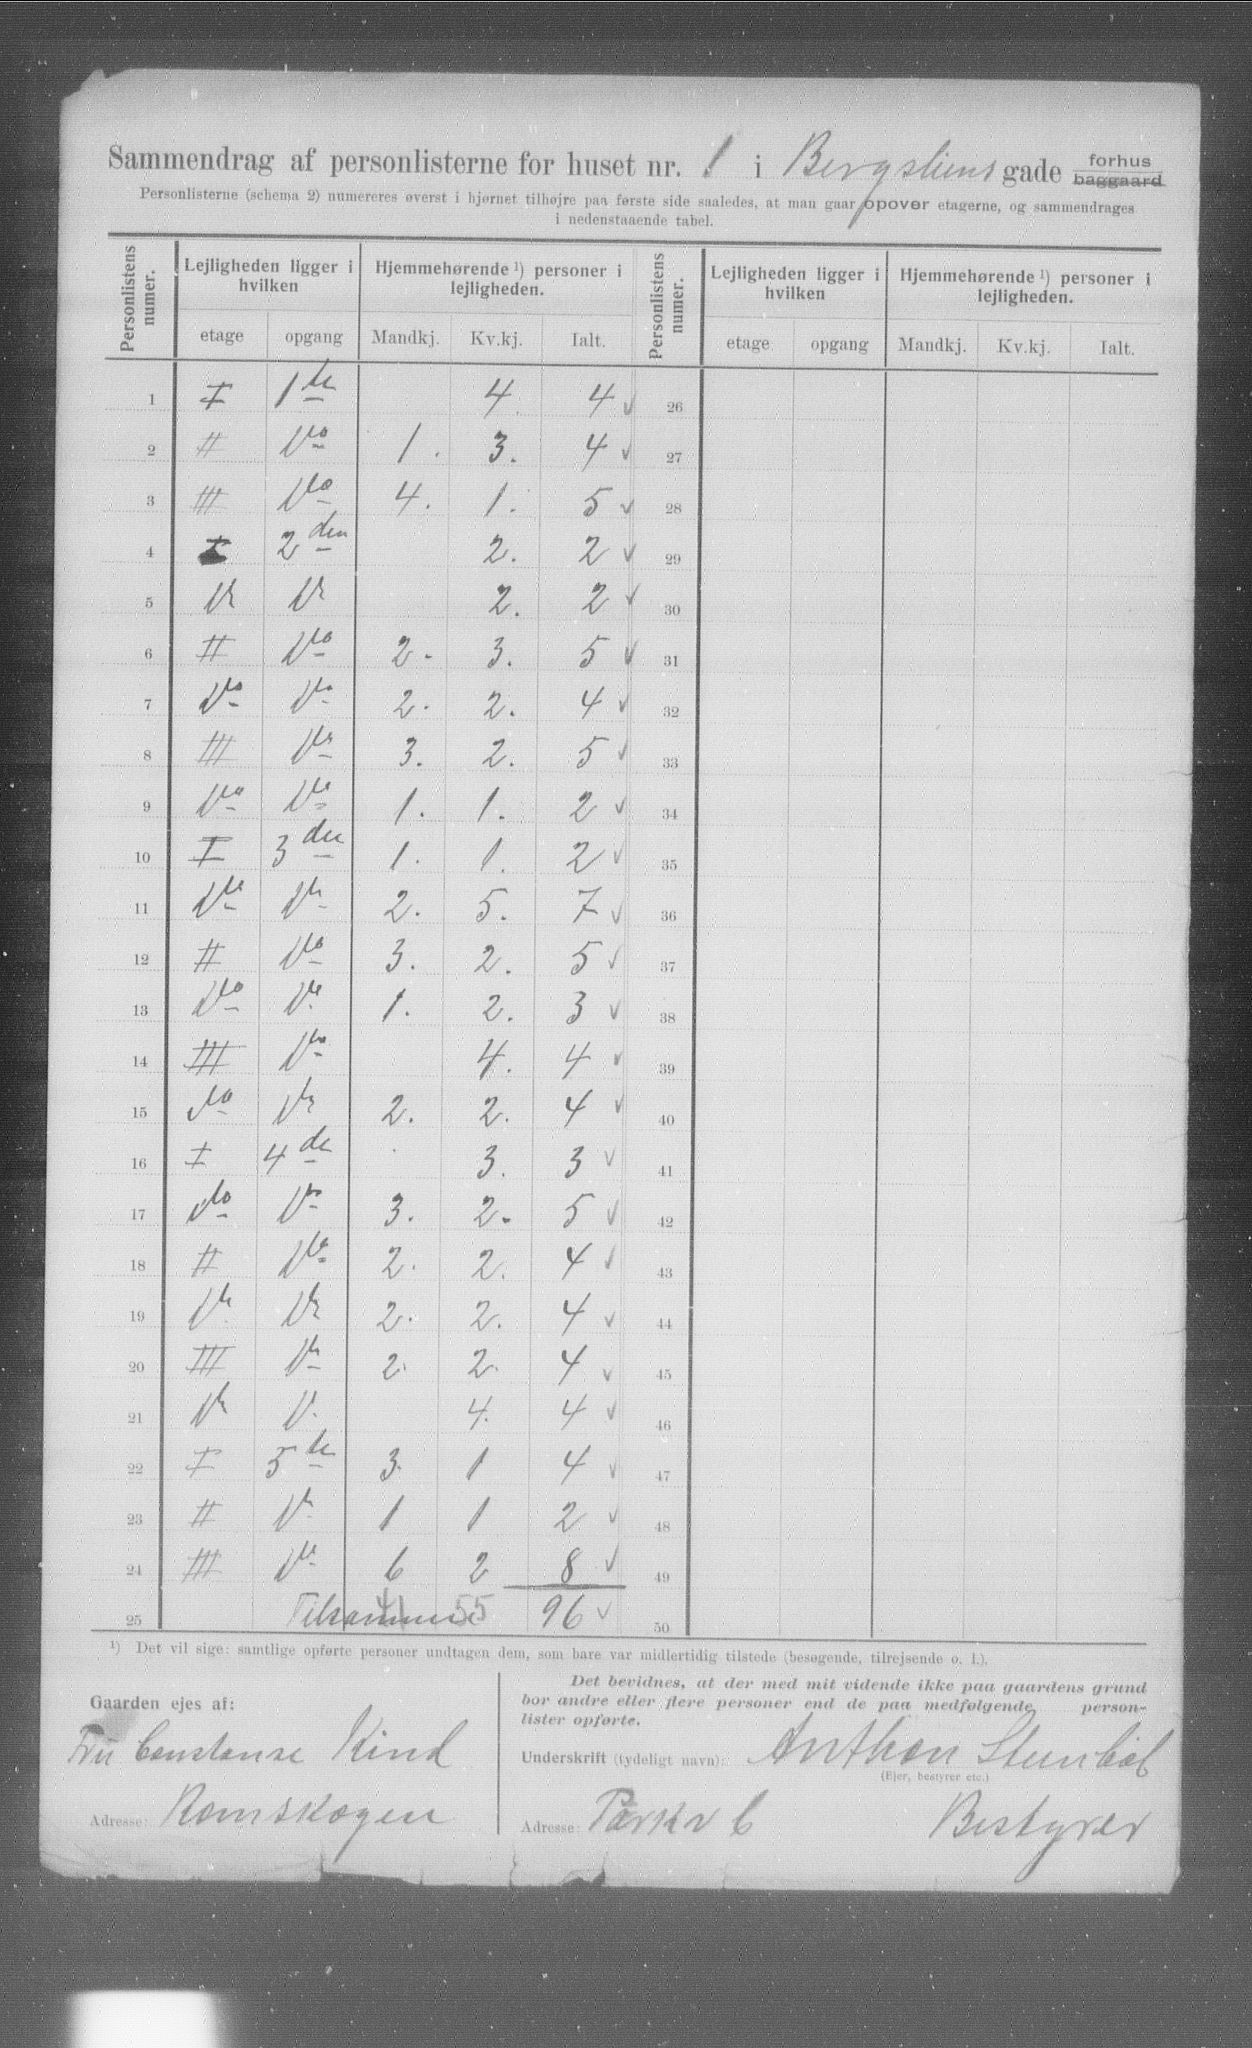 Sammendrag af personlisterne for huset nr. 1 i Bergsliens gade forhus baggaard
Personlisterne (schema 2) numereres øverst i hjørnet tilhøjre paa første side saaledes, at man gaar opover etagerne, og sammendrages
i nedenstaaende tabel.
Personlistens numer. Lejligheden ligger i hvilken Hjemmehørende ¹) personer i lejligheden. Personlistens numer. Lejligheden ligger i hvilken Hjemmehørende ¹) personer i lejligheden.
etage opgang Mandkj. Kv.kj. Ialt. etage opgang Mandkj. Kv.kj. Ialt.
1 I 1ste 4. 4 ✓ 26
2 II Do 1. 3. 4 ✓ 27
3 III Do 4. 1. 5 ✓ 28
4 I 2den 2. 2 ✓ 29
5 Do Do 2. 2 ✓ 30
6 II Do 2. 3. 5 ✓ 31
7 Do Do 2. 2. 4 ✓ 32
8 III Do 3. 2. 5 ✓ 33
9 Do Do 1. 1. 2 ✓ 34
10 I 3die 1. 1. 2 ✓ 35
11 Do Do 2. 5. 7 ✓ 36
12 II Do 3. 2. 5 ✓ 37
13 Do Do 1. 2. 3 ✓ 38
14 III Do 4. 4 ✓ 39
15 do Do 2. 2. 4 ✓ 40
16 I 4de 3. 3 ✓ 41
17 do Do 3. 2. 5 ✓ 42
18 II Do 2. 2. 4 ✓ 43
19 Do Do 2. 2. 4 ✓ 44
20 III Do 2. 2. 4 ✓ 45
21 Do D. 4. 4 ✓ 46
22 I 5te 3. 1 4 ✓ 47
23 II Do 1 1 2 ✓ 48
24 III Do 6 2 8 ✓ 49
25 Tilsammen 41 55 96 ✓ 50
¹) Det vil sige: samtlige opførte personer undtagen dem, som bare var midlertidig tilstede (besøgende, tilrejsende o. l.).
Gaarden ejes af:
Fru Constanse Kind
Adresse: Romskogen
Det bevidnes, at der med mit vidende ikke paa gaardens grund
bor andre eller flere personer end de paa medfølgende person-
lister opførte.
Underskrift (tydeligt navn): Anthon Stenbøl
(Ejer, bestyrer etc.)
Adresse: Parkv 6 Bestyrer